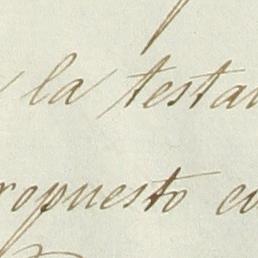 la testa
ropuesto co